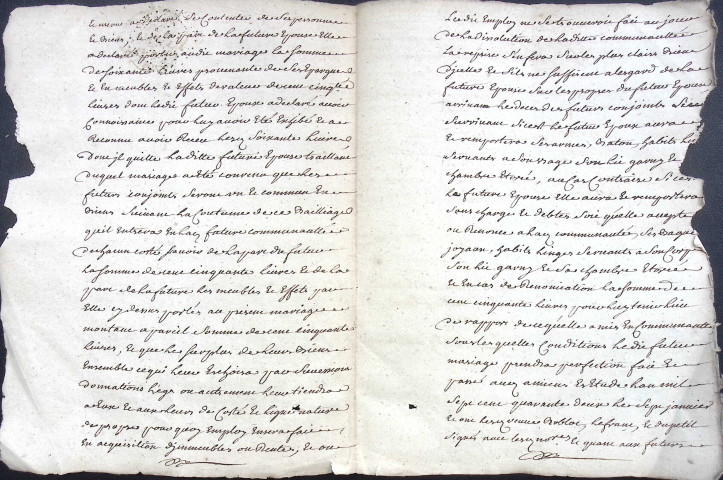 le mesme a declaré de Contente de Sa personne
et biens, et de la part de la future Epouse Elle
a declaré porter audit mariage la Somme
de Soixante livres provenante de Ses Epargnes
et En meubles et Effets de valeur de cent cinqte
livres dont ledit futur Epoux a declaré avoir
Connoissance pour luy avoir Eté Exhibé et a
Reconnu avoir Receu lesd. Soixante livres
dont il quitte laditte future Epouse traittant
duquel mariage a eté convenu que les
futurs conjoints Seront un et commun En
biens Suivant la Coutume de ce Bailliage
qu'il Entrera En lad. future communauté
de chacun costé Scavoir de la part du futur
la Somme de cent cinquante livres et de la
part de la future les meubles et Effets par
Elle cy dessus portés au present mariage
montant a pareil Somme de cent cinquante
livres, et que le Surplus de leurs biens
Ensemble ce qui leur Eschoira par Successions
donnations legs ou autrement leur tiendra
a Eux et aux leurs de Costé et ligne nature
de propre pour quoy Employ En sera fait
En acquisition d'immeubles ou Rentes, et ou
Ledit Employ ne Se trouveroit fait au jour
de la dissolution de laditte communauté
la reprise S'en fera Sur les plus clairs biens
d'icelle et S'ils ne Suffisent a l'egard de la
future Epouse Sur les propres du futur Epoux
arrivant le deces des futurs conjoints Si ce
Survivant Si c'est le futur Epoux aura
et remportera Ses armes, baton, habits
Servants a Son usage Son lit garny et
chambre Etorée, au Cas Contraire Si c'est
la future Epouse Elle aura et remportera
Sans charge de debtes Soit qu'elle accepte
ou Renonce a lad. communauté, Ses Bagues
joyaux, habits linges Servants a Son Corps
Son lit garny et Sa chambre Etorée
et En cas de Renonciation la Somme de
cent cinquante livres pour luy tenir lieu
de rapport de ce quelle a mis En Communauté
Sous lesquelles Conditions ledit futur
mariage prendra perfection fait et
passé a Amiens En Etude l'an mil
Sept cent quarante deux le Sept janvier
et ont lesd.
Signés avec lesd. nores et quant aux futurs